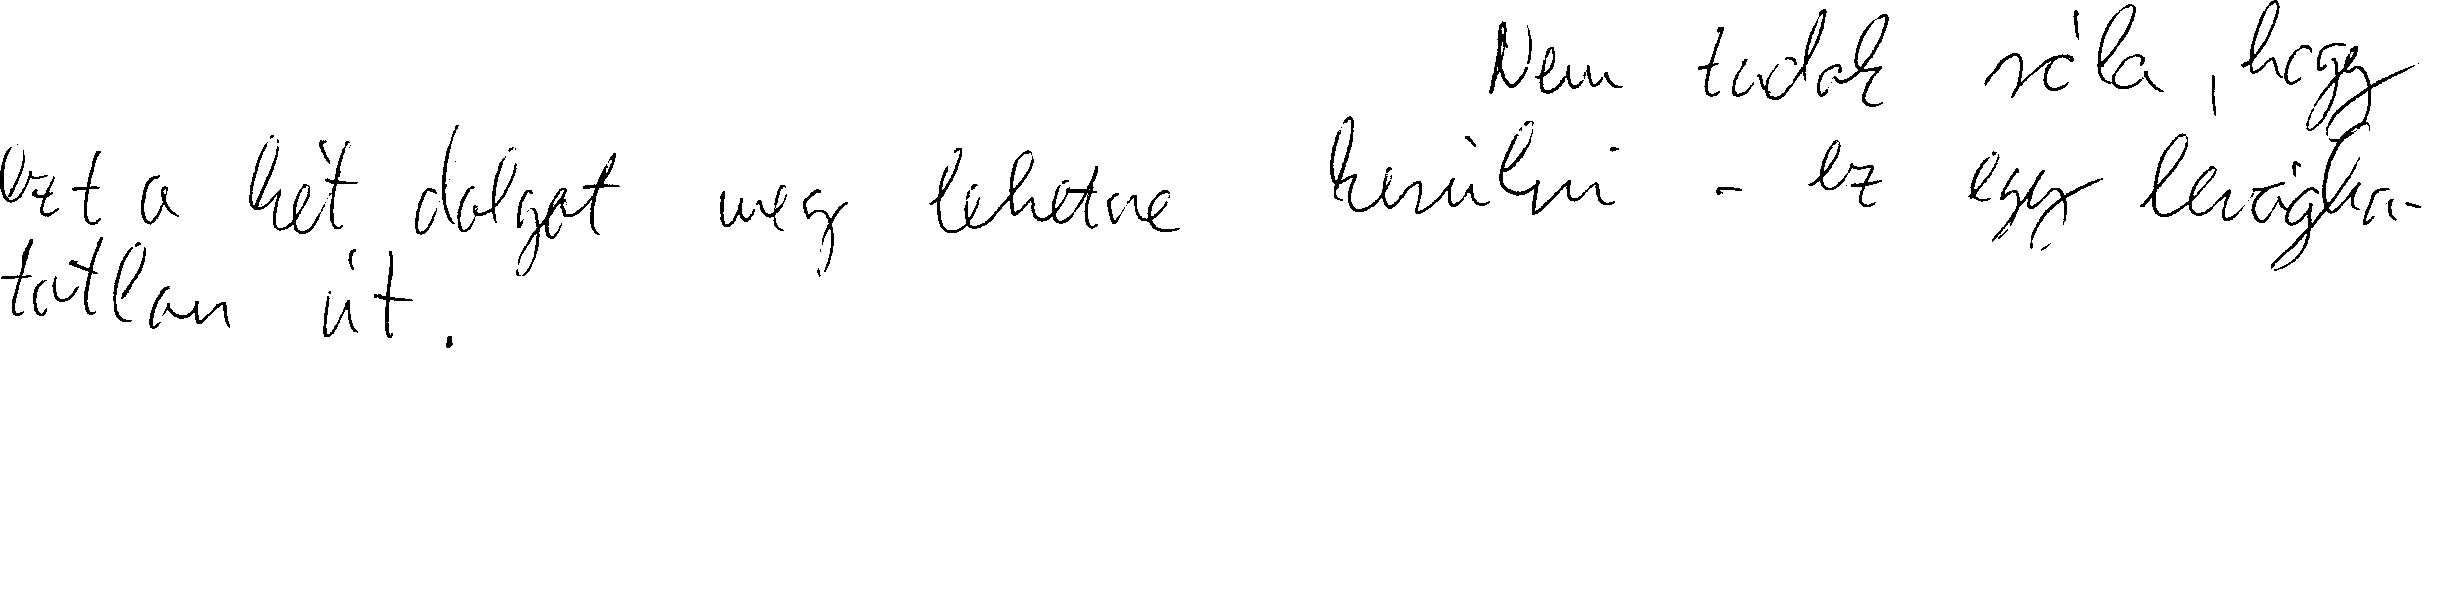 Nem tudok róla, hogy
ezt a két dolgot meg lehetne kerülni - ez egy levágha-
tatlan út.